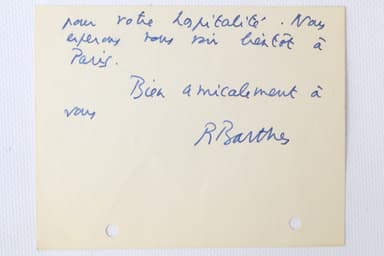 pour votre hospitalité. Nous
espérons vous voir bientôt à
Paris.
Bien amicalement à
vous
R Barthes